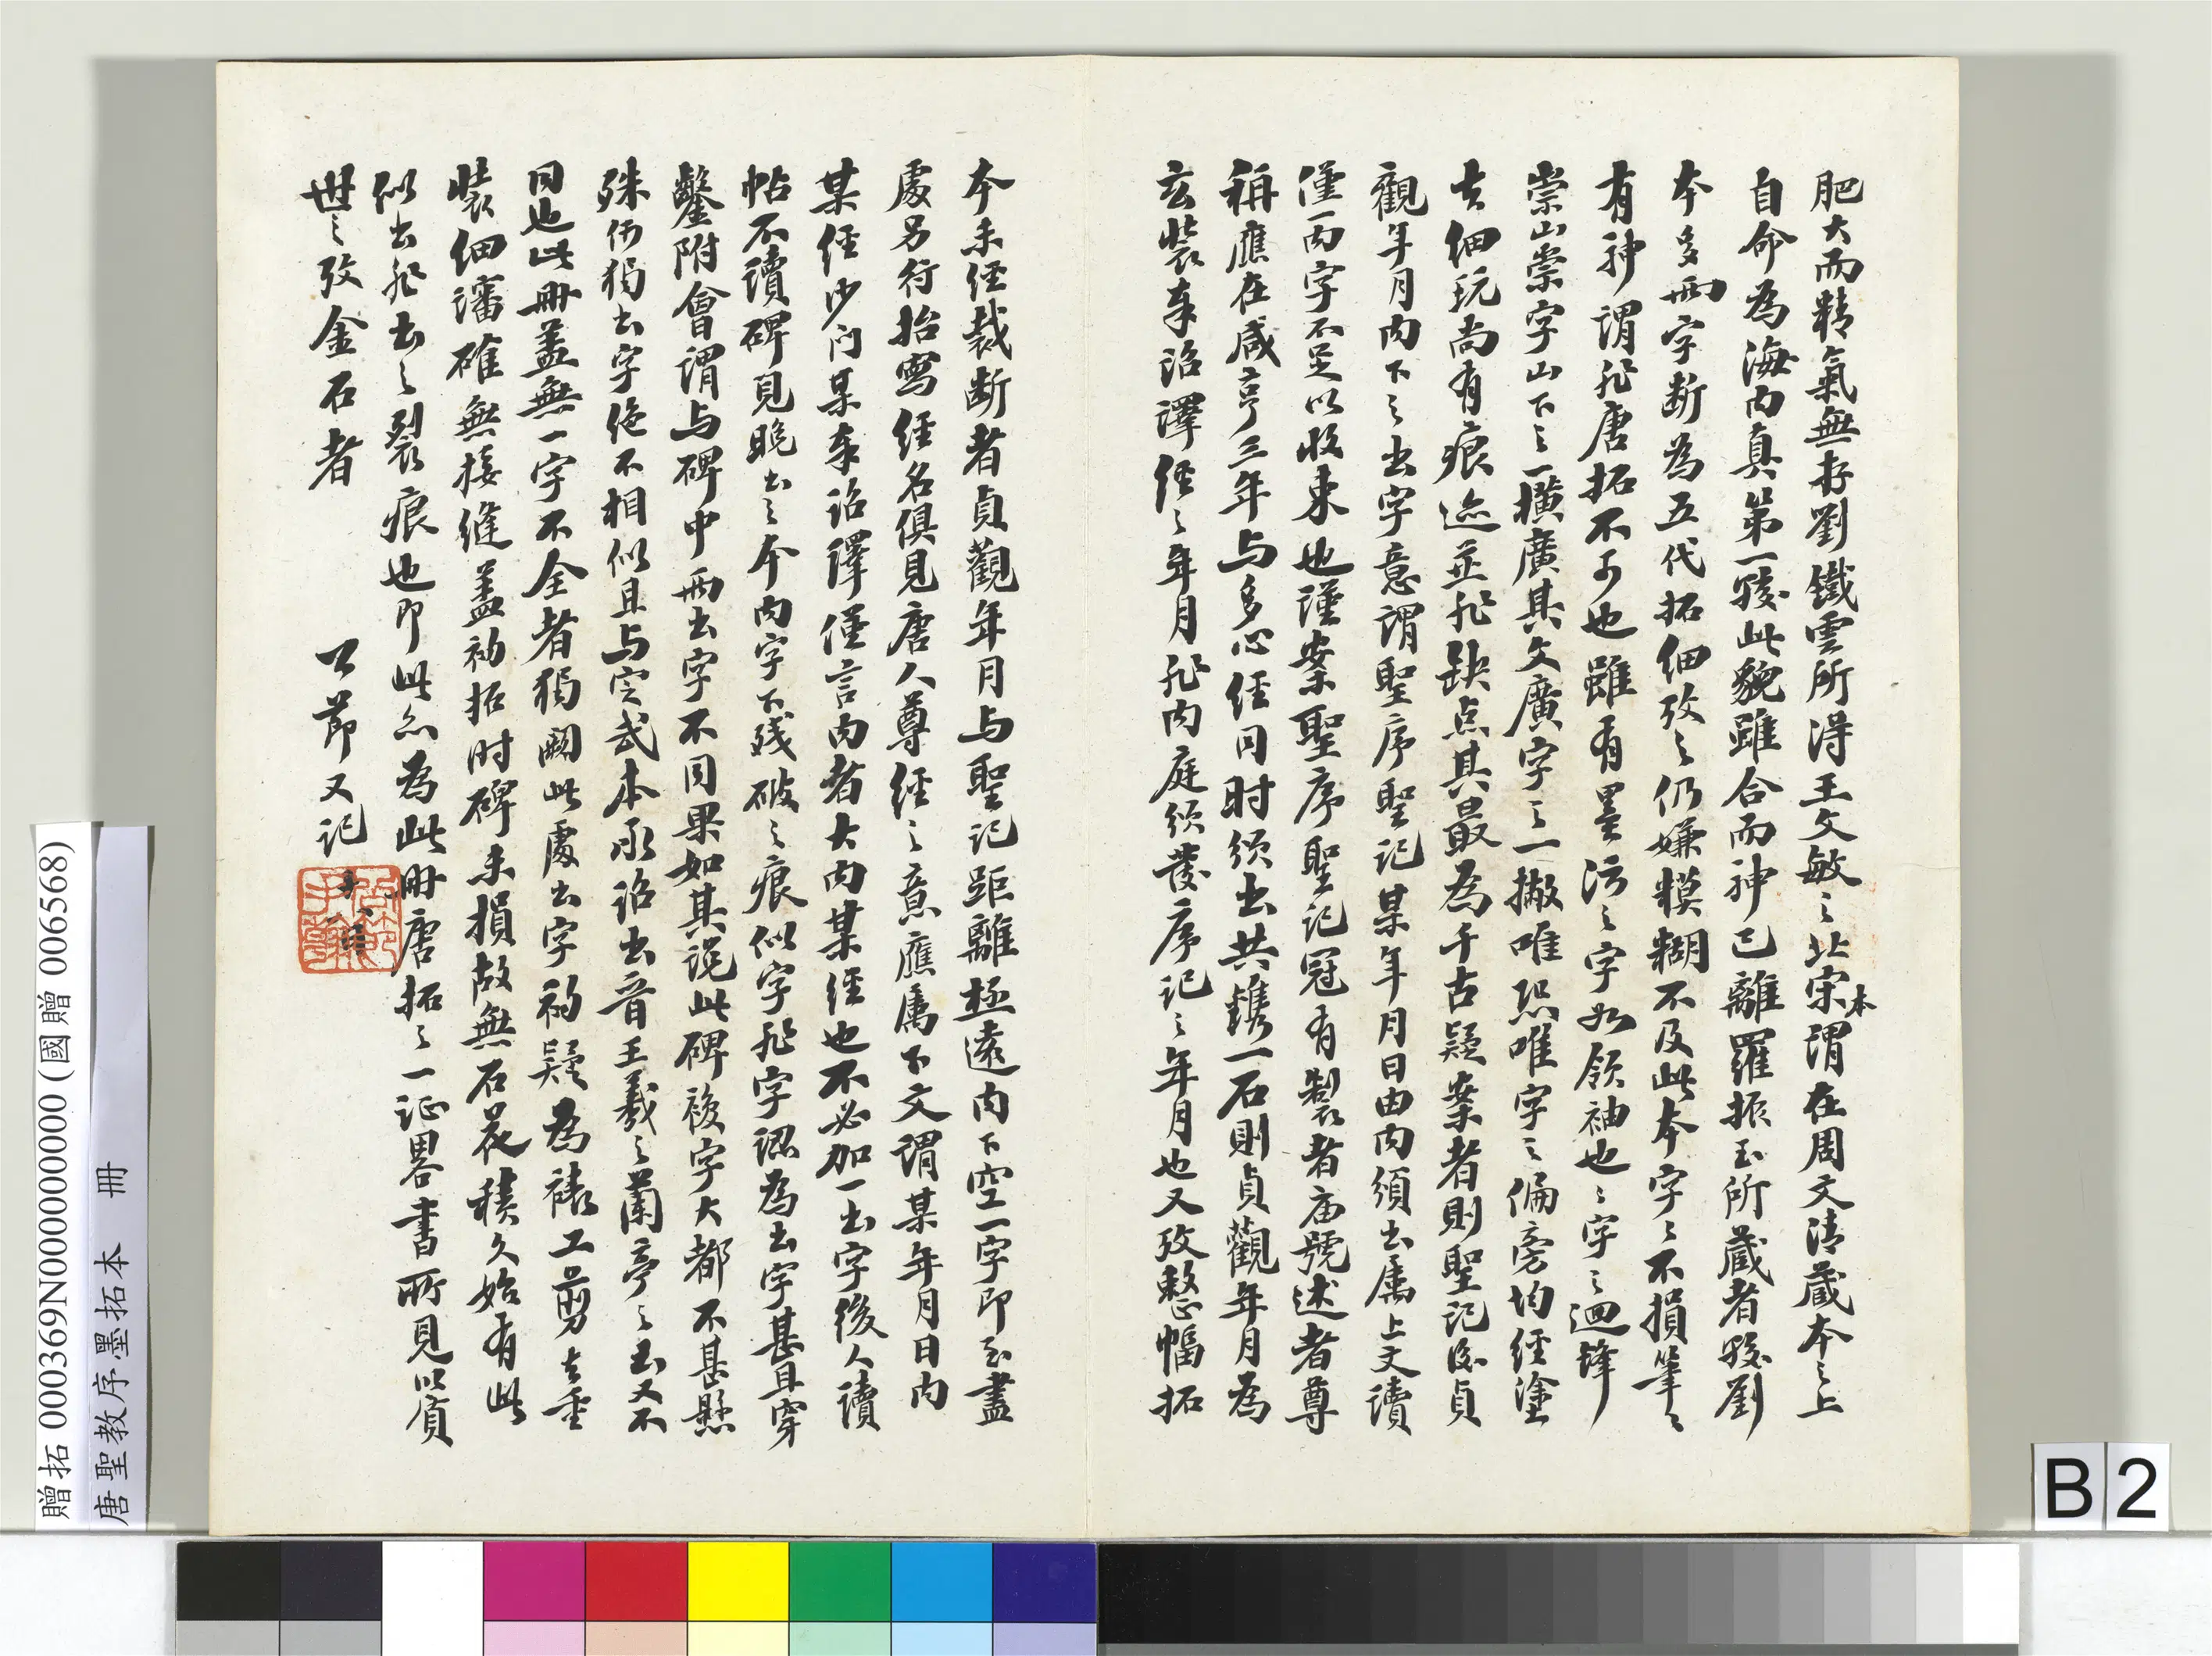 肥大而精氣無存劉鐵雲所得王文敏之北宋本謂在周文清藏本之上
自命為海內真第一發此貌雖合而神已離羅振玉所藏者發劉
本多兩字斷為五代拓細攷之仍嫌糢糊不及此本字之不損筆之
有神謂非唐拓不可也雖有墨污之字如領袖也之字之迴鋒
崇山崇字山下之一橫廣其文廣字之一撇唯恐唯字之偏旁均經塗
去細玩尚有痕迹並非缺点其最為千古疑案者則聖記後貞
觀年月內下之出字意謂聖序聖記某年月日由內頒出屬上文讀
僅一兩字不足以收束也謹案聖序聖記冠有製者廟號述者尊
稱應在咸亨三年与多心經同時頒出共鐫一石則貞觀年月為
玄裝奉詔譯經之年月非內庭頒發序記之年月也又攷整幅拓
本未經裁断者貞觀年月与聖記距離極遠內下空一字即至盡
處另行抬寫經名俱見唐人尊經之意應屬下文謂某年月日內
某經沙门某奉詔譯僅言內者大內某經也不必加一出字後人讀
帖不讀碑見晚出之本內字下殘破之痕似字非字認為出字甚且穿
鑿附會謂与碑中兩出字不同果如其说此碑複字大都不甚懸
殊何獨出字绝不相似且与定武本永詔出音王羲之蘭亭之出又不
同也此冊蓋無一字不全者獨闕此處出字初疑為裱工剪去重
裝細審確無接縫蓋初拓时碑未損故無石花積久始有此
似出非出之裂痕也即此亦為此冊唐拓之一证畧書所見以質
世之攷金石者
公節又记
贈拓 000369N000000000 (國贈 006568)
唐聖教序墨拓本 冊
B 2